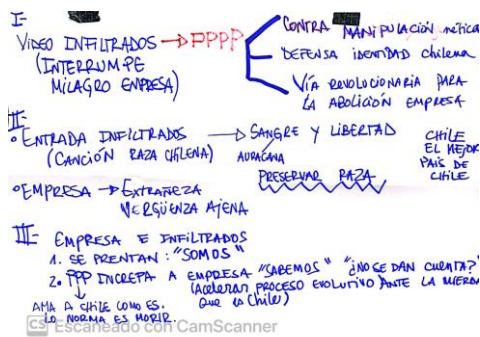 I-
VIDEO INFILTRADOS → PPPP
(INTERRUMPE
MILAGRO EMPRESA)
CONTRA MANIPULACIÓN
DEFENSA IDENTIDAD CHILENA
VÍA REVOLUCIONARIA PARA
LA ABOLICIÓN EMPRESA
II-
• ENTRADA INFILTRADOS → SANGRE Y LIBERTAD
(CANCIÓN RAZA CHILENA)
AURACANA
PRESERVAR RAZA
CHILE
EL MEJOR
PAIS DE
CHILE
• EMPRESA → EXTRAÑEZA
VERGÜENZA AJENA
III- EMPRESA E INFILTRADOS
1. SE PRENTAN: "SOMOS"
2. PPP INCREPA A EMPRESA "SABEMOS" "¿NO SE DAN CUENTA?"
(Acelerar PROCESO EVOLUTIVO ANTE LA MIERDA
QUE ES CHILE)
AMA A CHILE COMO ES.
LO NORMA ES MORIR.
CS Escaneado con CamScanner